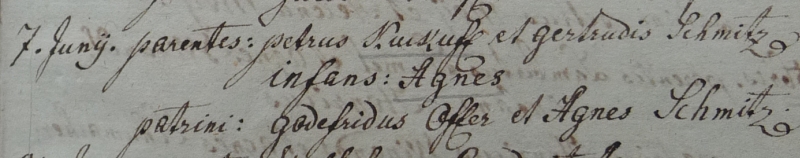 7. Junij. parentes: petrus Kuckuff et gertrudis Schmitz
infans: Agnes
patrini: godefridus Offer et Agnes Schmitz.